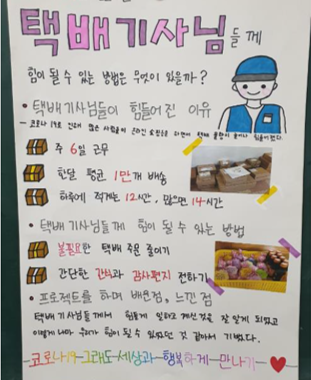 택배기사님들께
힘이 될 수 있는 방법은 무엇이 있을까?
• 택배기사님들이 힘들어진 이유
- 코로나19로 인해 많은 사람들이 온라인 쇼핑을 하면서 택배 물량이 늘어나 힘들어졌다.
주 6일 근무
한달 평균 1만개 배송
하루에 적게는 12시간, 많으면 14시간
• 택배 기사님들께 힘이 될 수 있는 방법
불필요한 택배 주문 줄이기
간단한 간식과 감사편지 전하기
• 프로젝트를 하며 배운점, 느낀 점
택배 기사님들께서 힘들게 일하고 계신것을 잘 알게 되었고
이렇게나마 우리가 힘이 될 수 있었던 것 같아서 기뻤다.
코로나19 그래도 세상과 행복하게 만나기